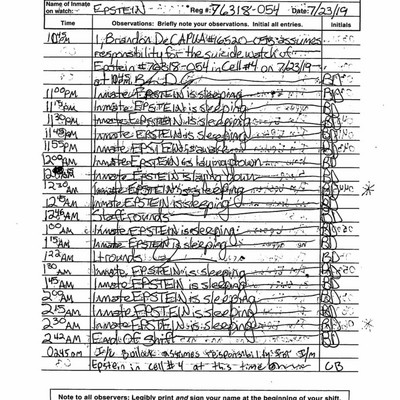 Name of Inmate on watch: EPSTEIN Reg #: 76318-054 Date: 7/23/19
Time Observations: Briefly note your observations. Initial all entries. Initials
10:45 PM I, Brandon DeCAPUA #16520- assumes
responsibility for the suicide watch of
Epstein #76318-054 in Cell #4 on 7/23/19
at 10:45 BD
11:00 PM Inmate EPSTEIN is sleeping BD
11:15 AM Inmate EPSTEIN is sleeping BD
11:30 AM Inmate EPSTEIN is sleeping BD
11:45 AM Inmate EPSTEIN is sleeping BD
11:55 PM Inmate EPSTEIN is awake BD
12:00 AM Inmate EPSTEIN is laying down BD
AM Inmate EPSTEIN is laying down BD
12:30 AM Inmate EPSTEIN is sleeping BD *
12:45 AM Inmate EPSTEIN is sleeping BD
12:46 AM Staff rounds BD
1:00 AM Inmate EPSTEIN is sleeping BD
1:15 AM Inmate EPSTEIN is sleeping BD
1:22 AM Lt rounds BD
1:30 AM Inmate EPSTEIN is sleeping BD
1:45 AM Inmate EPSTEIN is sleeping BD
2:00 AM Inmate EPSTEIN is sleeping BD
2:15 AM Inmate EPSTEIN is sleeping BD
2:30 AM Inmate EPSTEIN is sleeping BD *
2:42 AM End OF Shift BD
0245am I/C assumes responsibility for I/M
Epstein in cell #4 at this time CB
Note to all observers: Legibly print and sign your name at the beginning of your shift.